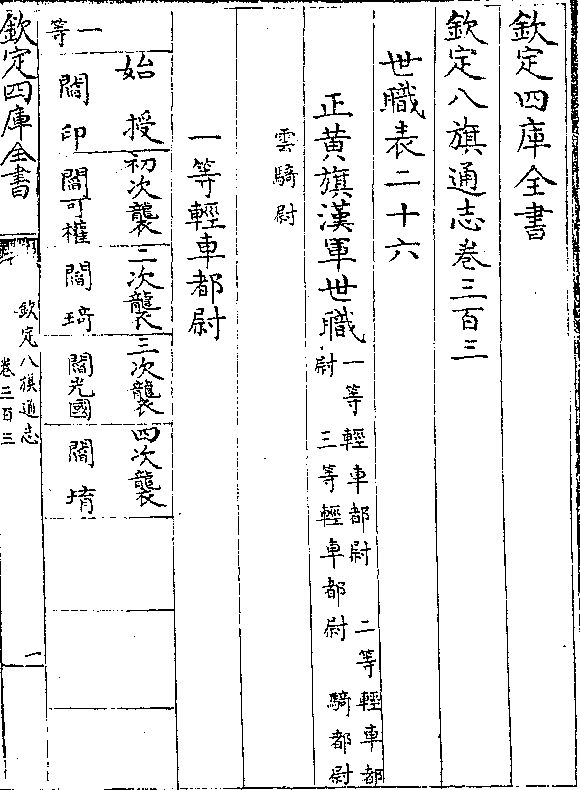 欽定四庫全書
欽定八旗通志卷三百三
世職表二十六
正黄旗漢軍世職一等輕車都尉 二等輕車都
尉 三等輕車都尉 騎都尉
雲騎尉
一等輕車都尉
始授 初次襲 二次襲 三次襲 四次襲
閻印 閻可權 閻琦 閻光國 閻堉
一等
欽定四庫全書
欽定八旗通志
卷三百三
一